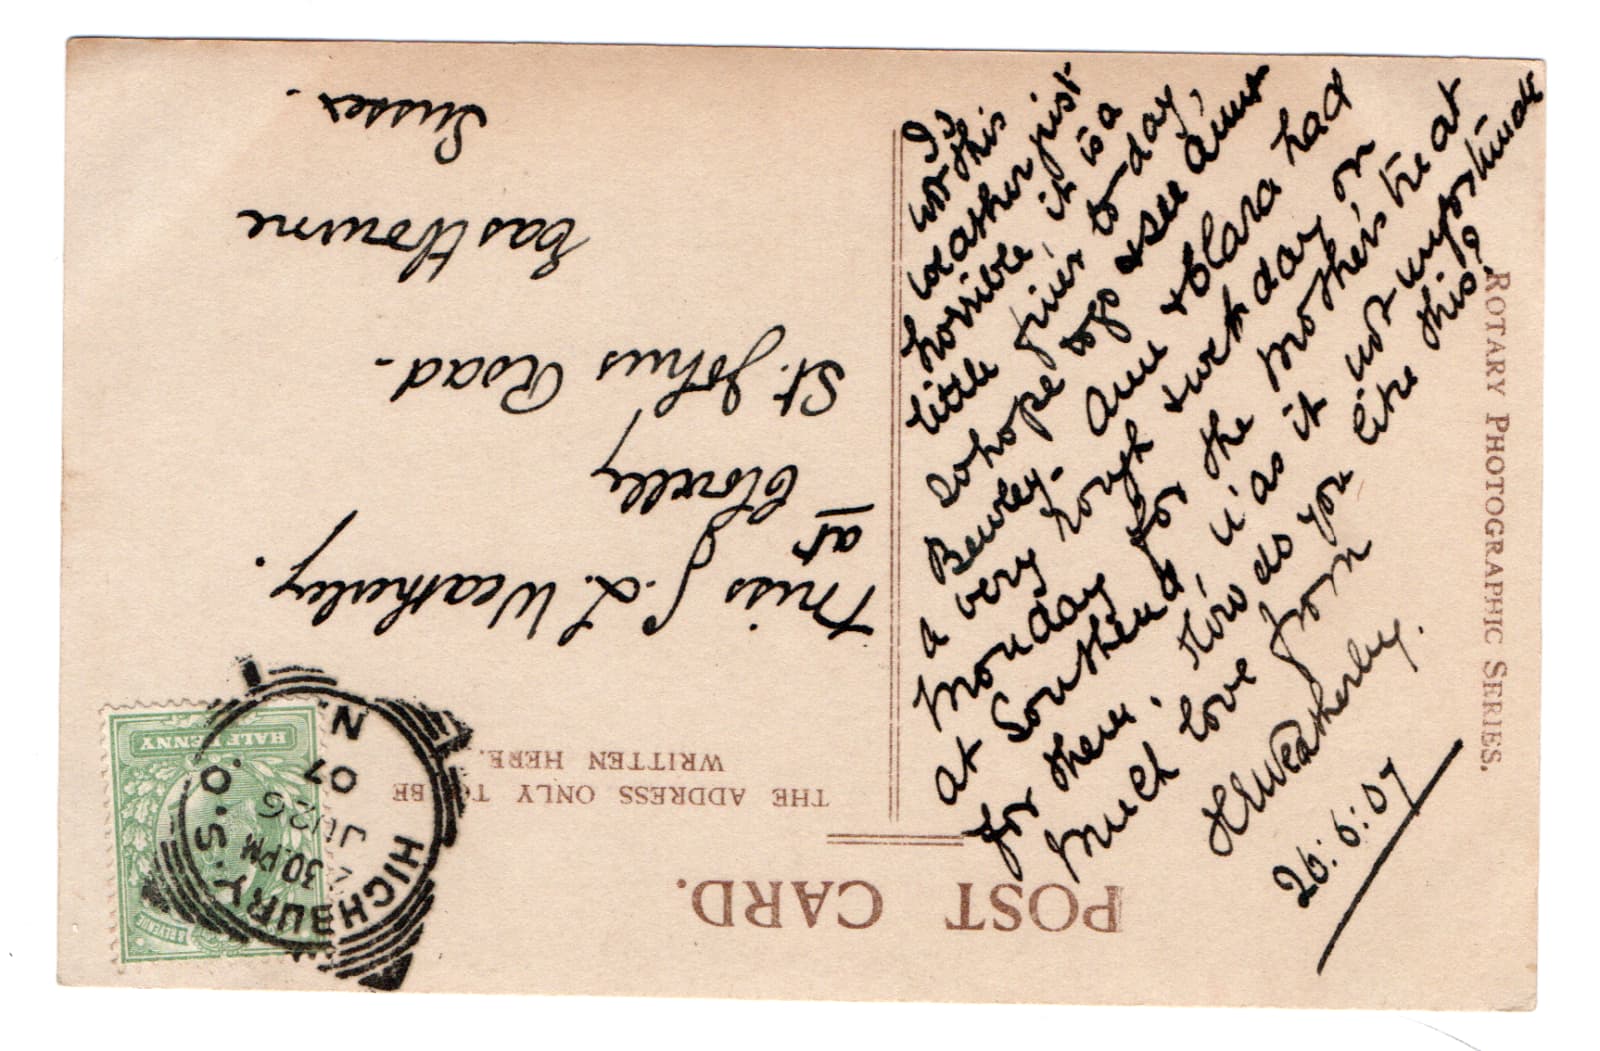 POST CARD.
THE ADDRESS ONLY TO BE
WRITTEN HERE.
ROTARY PHOTOGRAPHIC SERIES.
HALFPENNY
& REVENUE
HIGHBURY. S.O.
30 PM
JU 26
07
N.
Miss L. Weatherley.
at Clovelly
St. John's Road.
Eastbourne
Sussex.
Is
not this
weather just
horrible, it is a
little finer to-day,
so hope to go & see Aunt
Bewley. Aun & Clara had
a very rough & wet day on
Monday for the Mother's treat
at Southend, was it not unfortunate
for them. How do you like this?
Much love from
Weatherley.
26:6:07